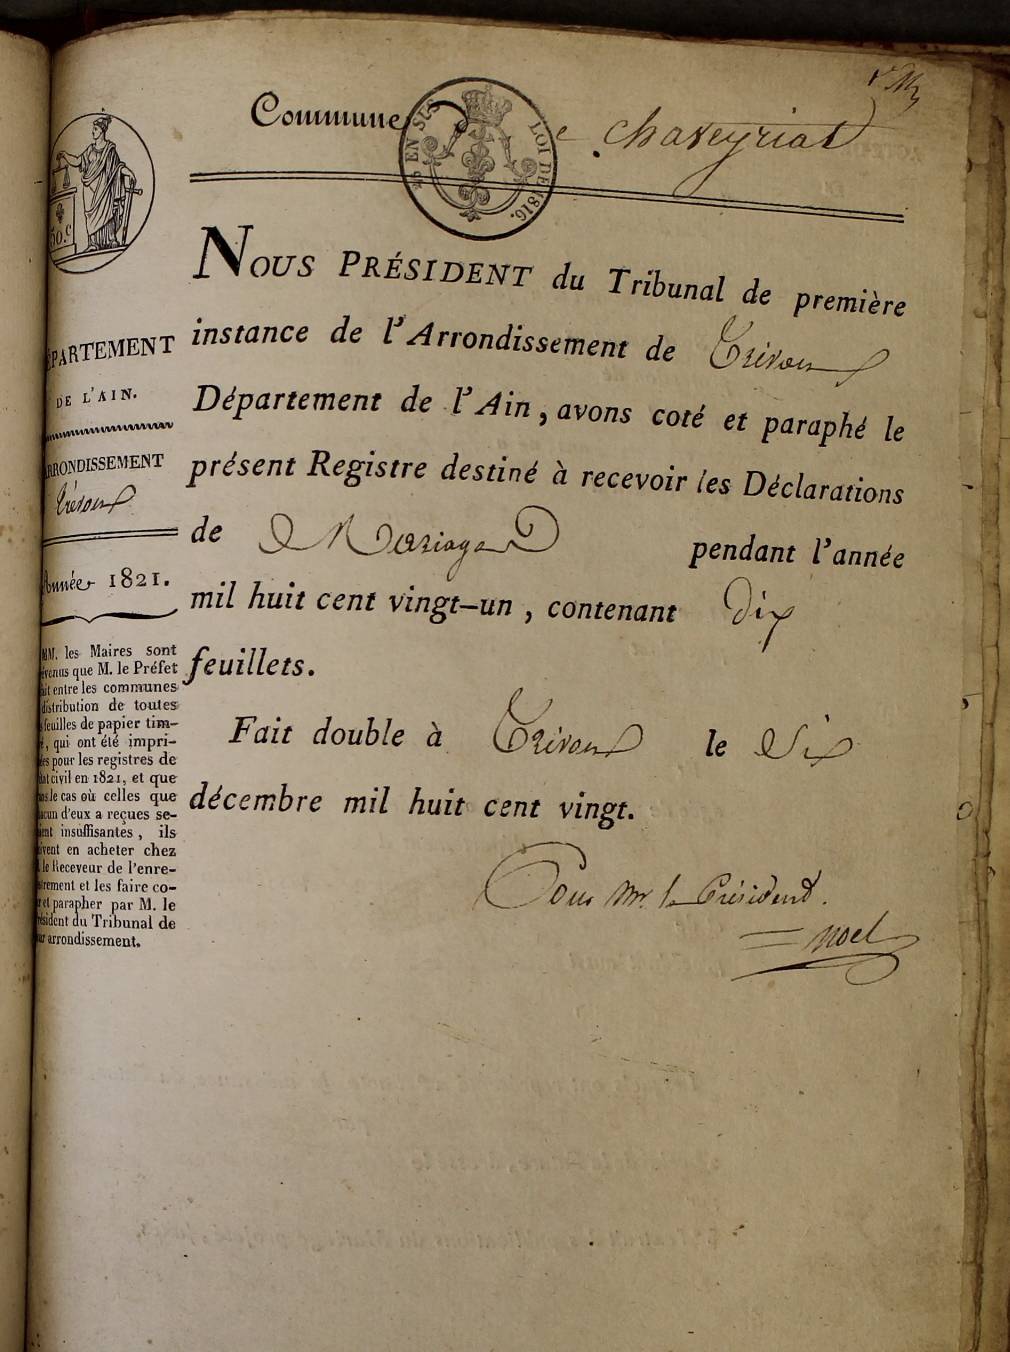 Commune de Chaveyriat
EN SUS
LOI DE 1816.
50.c
NOUS PRÉSIDENT du Tribunal de première
instance de l'Arrondissement de Trévoux
Département de l'Ain, avons coté et paraphé le
présent Registre destiné à recevoir les Déclarations
de Mariage pendant l'année
mil huit cent vingt-un, contenant dix
feuillets.
Fait double à Trévoux le Six
décembre mil huit cent vingt.
Pour Mr. le Président.
Noel
DÉPARTEMENT
DE L'AIN.
ARRONDISSEMENT
Trévoux
Année 1821.
MM. les Maires sont
évenus que M. le Préfet
ait entre les communes
distribution de toutes
feuilles de papier tim-
é, qui ont été impri-
ées pour les registres de
tat civil en 1821, et que
ns le cas où celles que
acun d'eux a reçues se-
ient insuffisantes, ils
ivent en acheter chez
le Receveur de l'enre-
strement et les faire co-
r et parapher par M. le
ésident du Tribunal de
ur arrondissement.